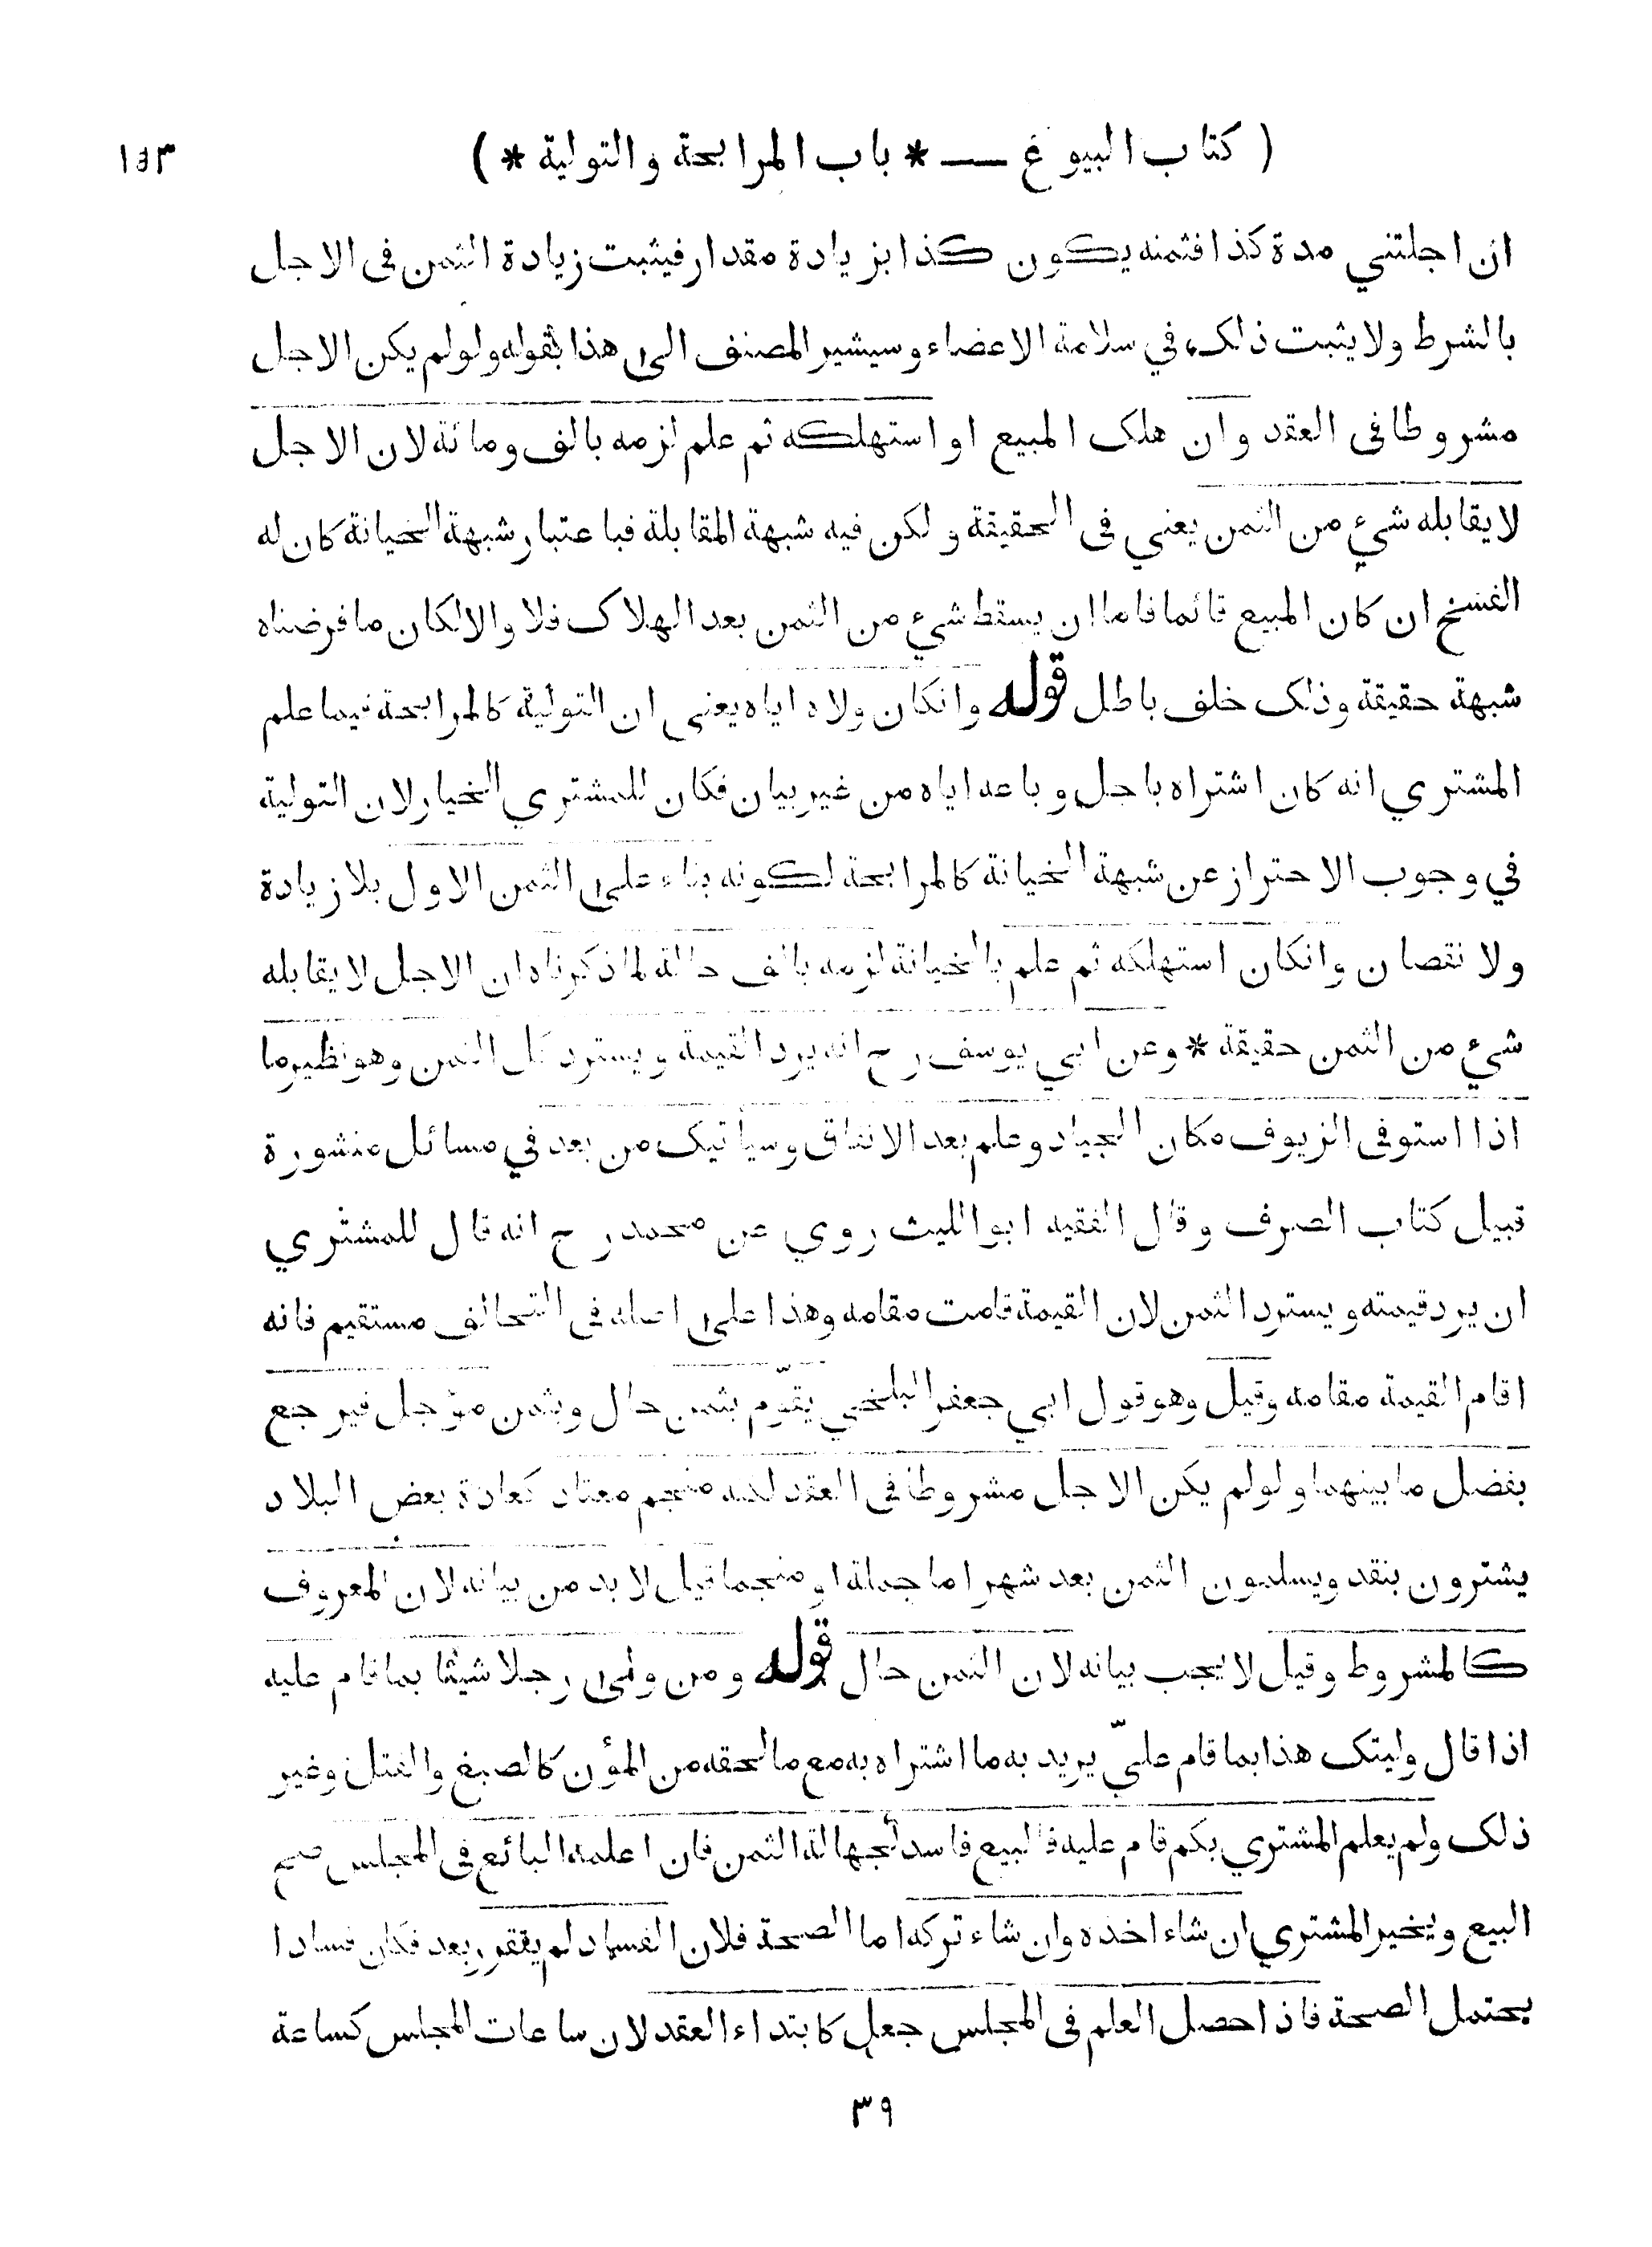 ( كتاب البيوع — * باب المرابحة والتولية * ) ١٤٣
ان اجلتني مدة كذا فثمنه يكون كذا بزيادة مقدار فيثبت زيادة الثمن فى الاجل
بالشرط ولا يثبت ذلك في سلامة الاعضاء وسيشير المصنف الى هذا بقوله ولو لم يكن الاجل
مشروطا فى العقد وان هلك المبيع او استهلكه ثم علم لزمه بالف ومائة لان الاجل
لا يقابله شيء من الثمن يعني فى الحقيقة ولكن فيه شبهة المقابلة فباعتبار شبهة الخيانة كان له
الفسخ ان كان المبيع قائما فاما ان يسقط شيء من الثمن بعد الهلاك فلا والا لكان ما فرضناه
شبهة حقيقة وذلك خلف باطل قوله وانكان ولاه اياه يعنى ان التولية كالمرابحة فيما علم
المشتري انه كان اشتراه باجل وباعه اياه من غير بيان فكان للمشتري الخيار لان التولية
في وجوب الاحتراز عن شبهة الخيانة كالمرابحة لكونه بناء على الثمن الاول بلا زيادة
ولا نقصان وانكان استهلكه ثم علم بالخيانة لزمه بالف حالة لما ذكرناه ان الاجل لا يقابله
شيء من الثمن حقيقة * وعن ابي يوسف رح انه يرد القيمة ويسترد كل الثمن وهو نظير ما
اذا استوفى الزيوف مكان الجياد وعلم بعد الانفاق وسيأتيك من بعد في مسائل منثورة
قبيل كتاب الصرف وقال الفقيه ابو الليث روي عن محمد رح انه قال للمشتري
ان يرد قيمته ويسترد الثمن لان القيمة قامت مقامه وهذا على اصله فى التحالف مستقيم فانه
اقام القيمة مقامه وقيل وهو قول ابي جعفر البلخي يقوّم بثمن حال وبثمن مؤجل فيرجع
بفضل ما بينهما ولو لم يكن الاجل مشروطا فى العقد لكنه منجم معتاد كعادة بعض البلاد
يشترون بنقد ويسلمون الثمن بعد شهر اما جملة او منجما قيل لا بد من بيانه لان المعروف
كالمشروط وقيل لا يجب بيانه لان الثمن حال قوله ومن ولى رجلا شيئا بما قام عليه
اذا قال وليتك هذا بما قام عليّ يريد به ما اشتراه به مع ما لحقه من المؤن كالصبغ والفتل وغير
ذلك ولم يعلم المشتري بكم قام عليه فالبيع فاسد لجهالة الثمن فان اعلمه البائع فى المجلس صح
البيع ويخير المشتري ان شاء اخذه وان شاء تركه اما الصحة فلان الفساد لم يتقرر بعد فكان فسادا
يحتمل الصحة فاذا حصل العلم فى المجلس جعل كابتداء العقد لان ساعات المجلس كساعة
٣٩